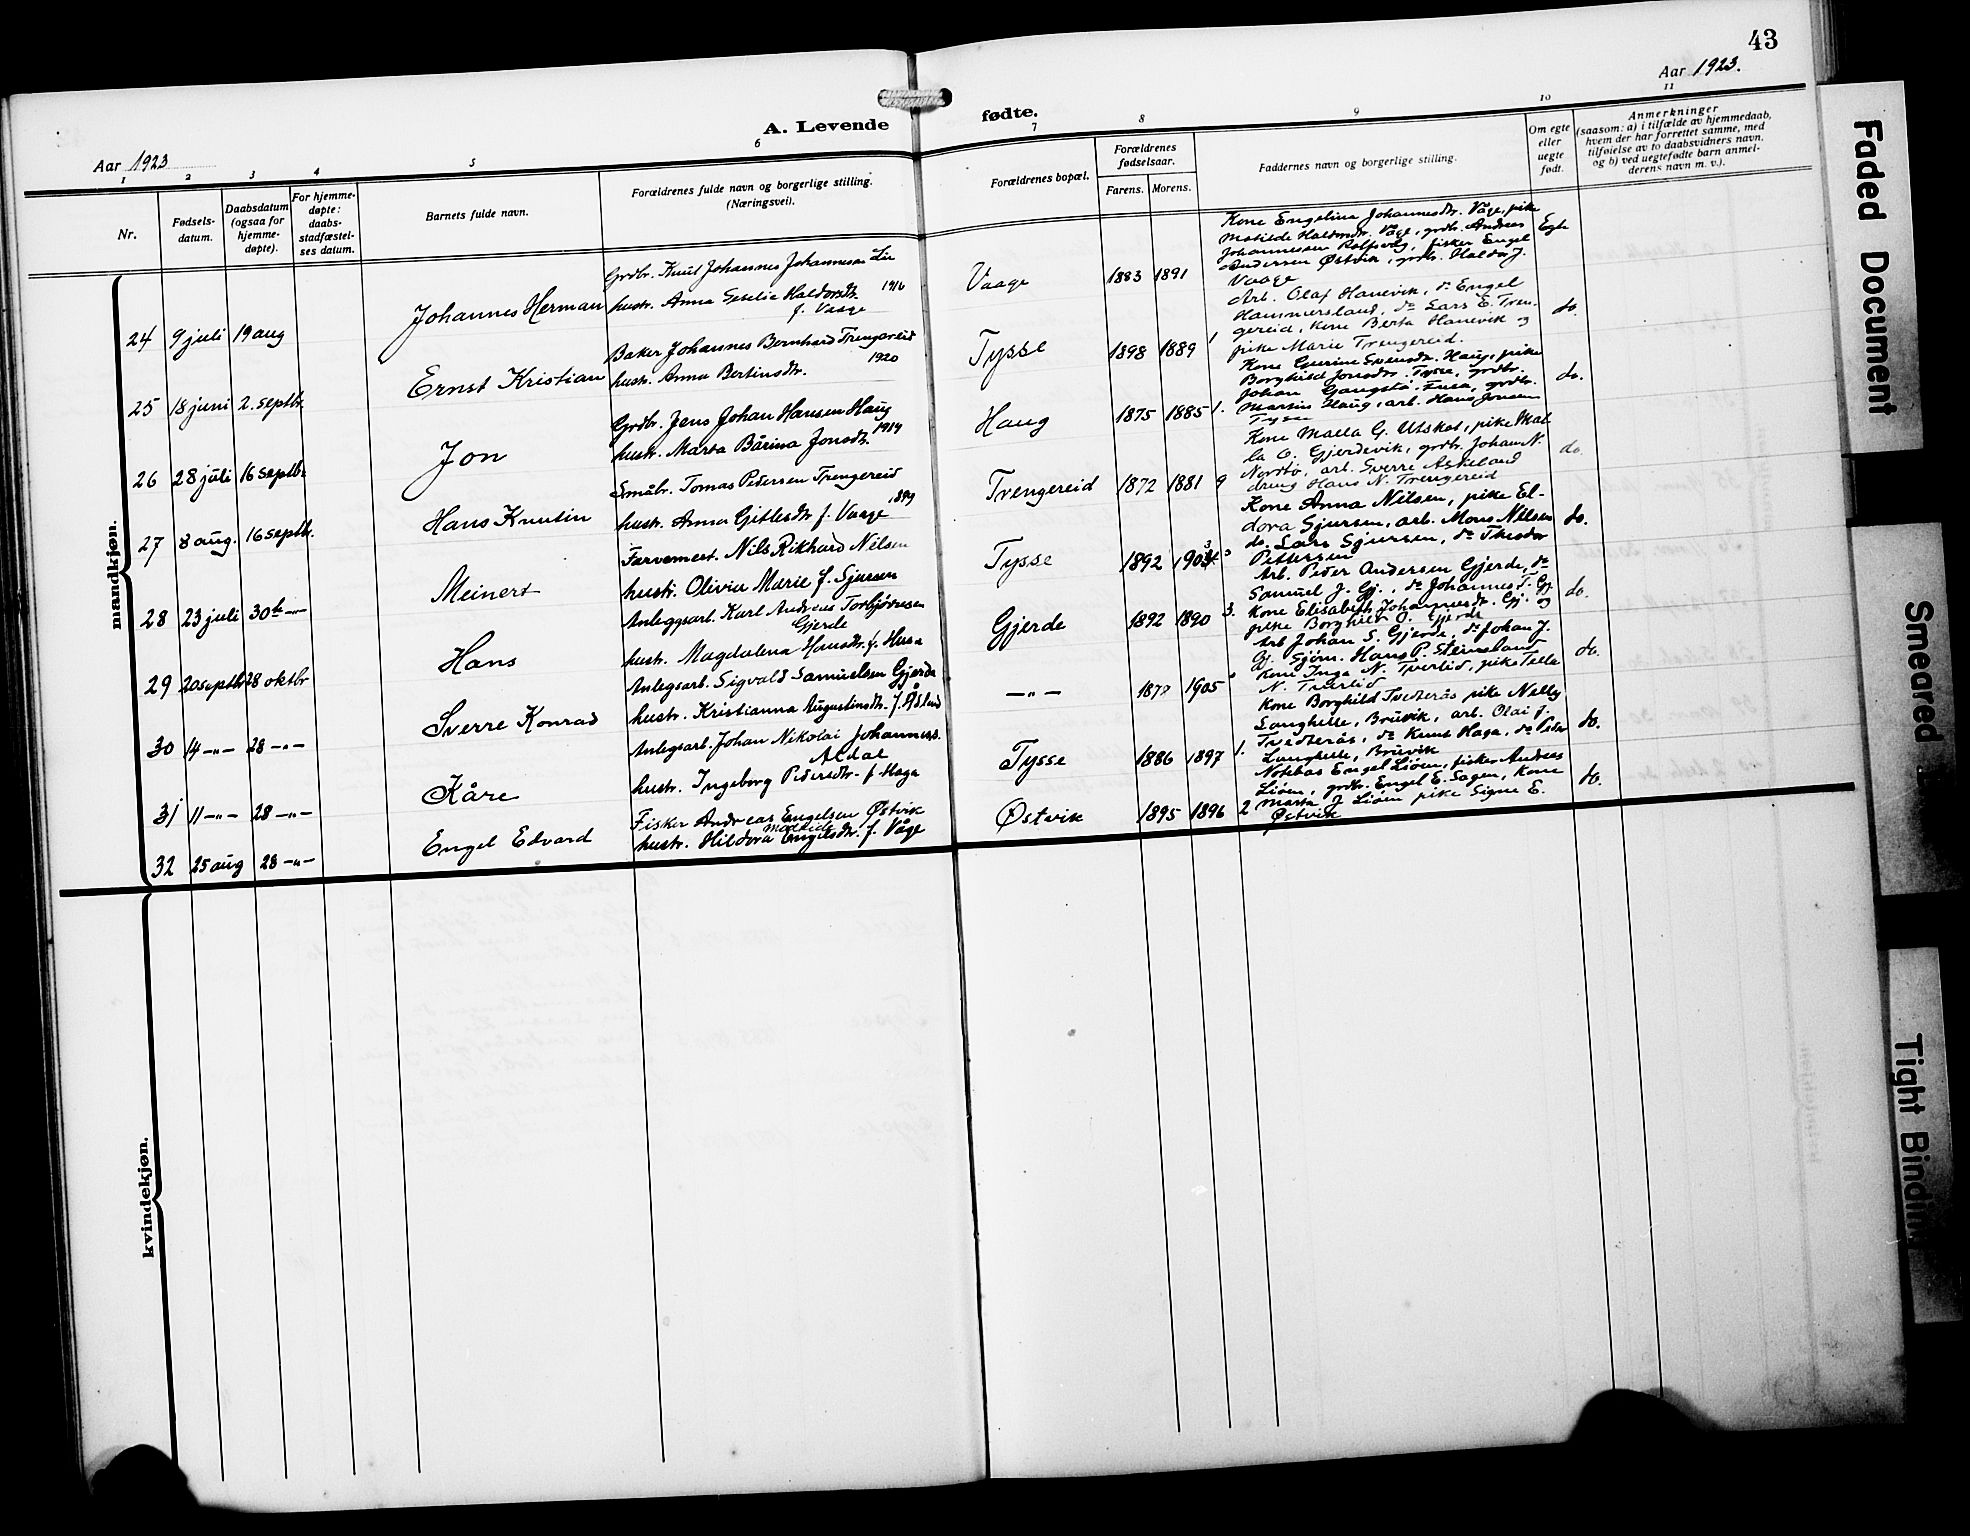 43
Aar 1923.
Aar 1923
A. Levende fødte.
1 2 3 4 5 6 7 8 9 10 11
Nr.
Fødsels-
datum.
Daabsdatum
(ogsaa for
hjemme-
døpte).
For hjemme-
døpte:
daabs-
stadfæstel-
ses datum.
Barnets fulde navn.
Forældrenes fulde navn og borgerlige stilling.
(Næringsvei).
Forældrenes bopæl.
Forældrenes
fødselsaar.
Farens. Morens.
Faddernes navn og borgerlige stilling.
Om egte
eller
uegte
født.
Anmerkninger
(saasom: a) i tilfælde av hjemmedaab,
hvem der har forrettet samme, med
tilføielse av to daabsvidners navn.
og b) ved uegtefødte barn anmel-
derens navn m. v.).
mandkjøn.
24 9 juli 19 aug
Johannes Herman
Grdbr. Knut Johannes Johannesen Lie
hustr. Anna Geselie Haldorsdtr. 1916
f. Vaage
Vaage
1883 1891
Kone Engelina Johannesdtr. Våge, pike
Matilde Haldorsdtr. Våge, grdbr. Andreas
Johannesen Rolfsvåg, fisker Engel
Andersen Østvik, grdbr. Haldor J.
Vaage
Egte
25 18 juni 2. septbr.
Ernst Kristian
Baker Johannes Bernhard Trengereid
hustr. Anna Bertinsdtr. 1920
Tysse
1898 1889 1
Arb. Olaf Hanevik, do Engel
Hammersland, do Lars E. Tren-
gereid, kone Berta Hanevik og
pike Marie Trengereid.
do.
26 28 juli 16 septbr
Jon
Grdbr. Jens Johan Hansen Haug
hustr. Marta Bårina Jonsdtr. 1914
Haug
1875 1885 1.
Kone Guerine Svensdtr. Haug, pike
Borghild Jonsdtr. Tysse, grdbr.
Johan Gangstø, Fusa, grdbr.
Martin Haug, arb. Hans Jonsen
Tysse
do.
27 8 aug. 16 septbr.
Hans Knutin
Småbr. Tomas Pedersen Trengereid
hustr. Anna Gitlesdtr f. Vaage 1899
Trengereid
1872 1881 9
Kone Malla G. Utskot, pike Mal-
la O. Gjerdevik, grdbr. Johan N.
Nordbø, arb. Sverre Askeland
dreng Hans N. Trengereid
do.
28 23 juli 30te -"-
Meinert
Farvemest. Nils Rikhard Nilsen
hustr. Olivia Marie f. Sjursen
Tysse
1892 1903
Kone Anna Nilsen, pike El-
dora Sjursen, arb. Mons Nilsen
do. Lars Sjursen, do Theodor
Pettersen
do.
29 20 septbr 28 oktbr
Hans
Anleggsarb. Karl Andreas Torbjørnsen
Gjerde
hustr. Magdalena Hansdtr. f. Husa
Gjerde
1892 1890 3.
Arb. Peder Andersen Gjerde, do
Samuel J. Gj., do Johannes T. Gj
Kone Elisabeth Johannesdtr. Gj. og
pike Borghild O. Gjerde
do.
30 14 -"- 28 -"-
Sverre Konrad
Anlegsarb. Sigvald Samuelsen Gjerde
hustr. Kristianna Augustinsdtr. f. Åsland
-"-
1877 1905
Arb Johan S. Gjerde, do Johan J.
Gj. Sjøm. Hans P. Steinsland
Kone Inga N. Tverlid, pike Telle
N. Tverlid
do.
31 11 -"- 28 -"-
Kåre
Anlegsarb. Johan Nikolai Johanness.
Aldal
hustr. Ingeborg Pedersdtr. f. Haga
Tysse
1886 1897 1.
Kone Borghild Tvedterås pike Nelly
Langhelle, Brüvik, arb. Olai J.
Tvedterås, do Knut Haga, do Peder
Langhelle, Brüvik
do.
32 25 aug 28 -"-
Engel Edvard
Fisker Andreas Engelsen Østvik
hustr. Hildora Matilde Engelsdtr. f. Våge
Østvik
1895 1896 2
Notebas Engel Liøen, fisker Andreas
Liøen, grdbr. Engel E. Sagen, Kone
Marta J Liøen pike Signe E.
Østvik
do.
kvindekjøn.
Faded Document
Smeared
Tight Bindin